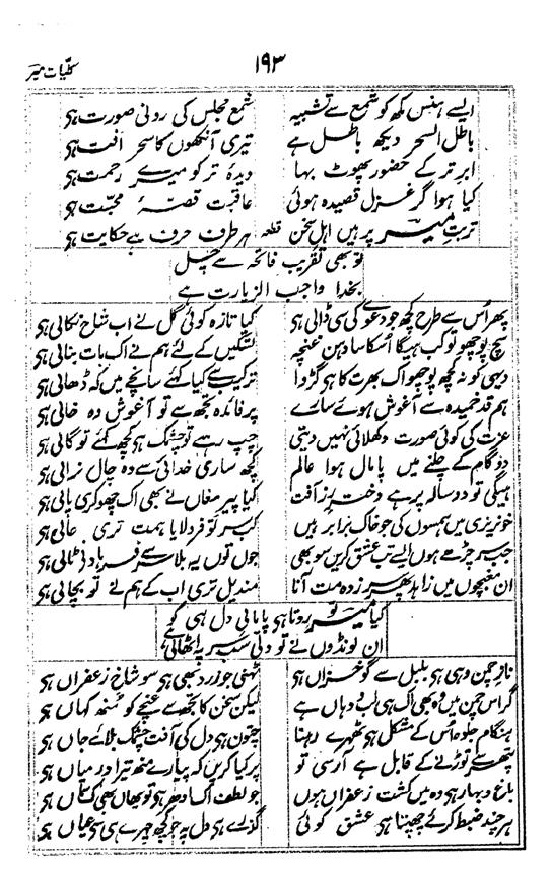 کلیات میر
۱۹۳
ایسے ہنس مکھ کو شمع سے تشبیہ شمع مجلس کی رونی صورت ہی
باطل السحر دیکھ باطل ہے تیری آنکھوں کا سحر آفت ہی
ابر تر کے حضور پھوٹ بہا دیدۂ تر کو میرے رحمت ہی
کیا ہوا گر غزل قصیدہ ہوئی عاقبت قصۂ محبت ہی
تربت میر پر ہیں اہل سخن قطعہ ہر طرف حرف ہے حکایت ہی
تو بھی تقریب فاتحہ سے چل
بخدا واجب الزیارت ہے
پھر اس سے طرح کچھ جو دعوے کی سی ڈالی ہی کیا تازہ کوئی گل نے اب شاخ نکالی ہی
سچ پوچھو تو کب ہیگا اسکا سا دہن غنچہ تسکیں کے لئے ہم نے اک بات بنالی ہی
دیہی کو نہ کچھ پوچھو اک بھرت کا ہی گڑوا ترکیب سے کیا کہئے سانچے میں کہ ڈھالی ہی
ہم قد خمیدہ سے آغوش ہوئے سارے پر فائدہ تجھ سے تو آغوش وہ خالی ہی
عزت کی کوئی صورت دکھلائی نہیں دیتی چپ رہے تو چشمک ہی کچھ کہئے تو گالی ہی
دو گام کے چلنے میں پامال ہوا عالم کچھ ساری خدائی سے وہ چال نرالی ہی
ہیگی تو دو سالہ پر ہے دختر رز آفت کیا پیر مغاں نے بھی اک چھوکری پالی ہی
خونریزی میں ہمسوں کی جو خاک برابر ہیں کب سر تو فرو لایا ہمت تری عالی ہی
جب سر چڑھے ہوں ایسے تب عشق کریں سو بھی جوں توں یہ بلا سر سے فرہاد نے ٹالی ہی
ان مغبچوں میں زاہد پھر سرزدہ مت آنا مندیل تری اب کے ہم نے تو بچالی ہی
کیا میر تو روتا ہی پامالی دل ہی کو
ان لونڈوں نے تو دلی سب سر پہ اٹھالی ہے
ناز چمن وہی ہی بلبل سے گو خزاں ہی ٹہنی جو زرد بھی ہی سو شاخ زعفراں ہی
گر اس چمن میں وہ بھی اک ہی لب و دہاں ہے لیکن سخن کا تجھ سے غنچے کو منھ کہاں ہی
ہنگام جلوہ اس کے مشکل ہی ٹھہرے رہنا چتون ہی دل کی آفت چشمک بلائے جاں ہی
پتھر سے توڑنے کے قابل ہے آرسی تو پر کیا کریں کہ پیارے منھ تیرا درمیاں ہی
باغ و بہار ہی وہ میں کشت زعفراں ہوں جو لطف اک ادھر ہی تو یھاں بھی کساں ہی
ہر چند ضبط کرئے چھپتا ہی عشق کوئی گذرے ہی دل پہ جو کچھ چہرے ہی سے عیاں ہی